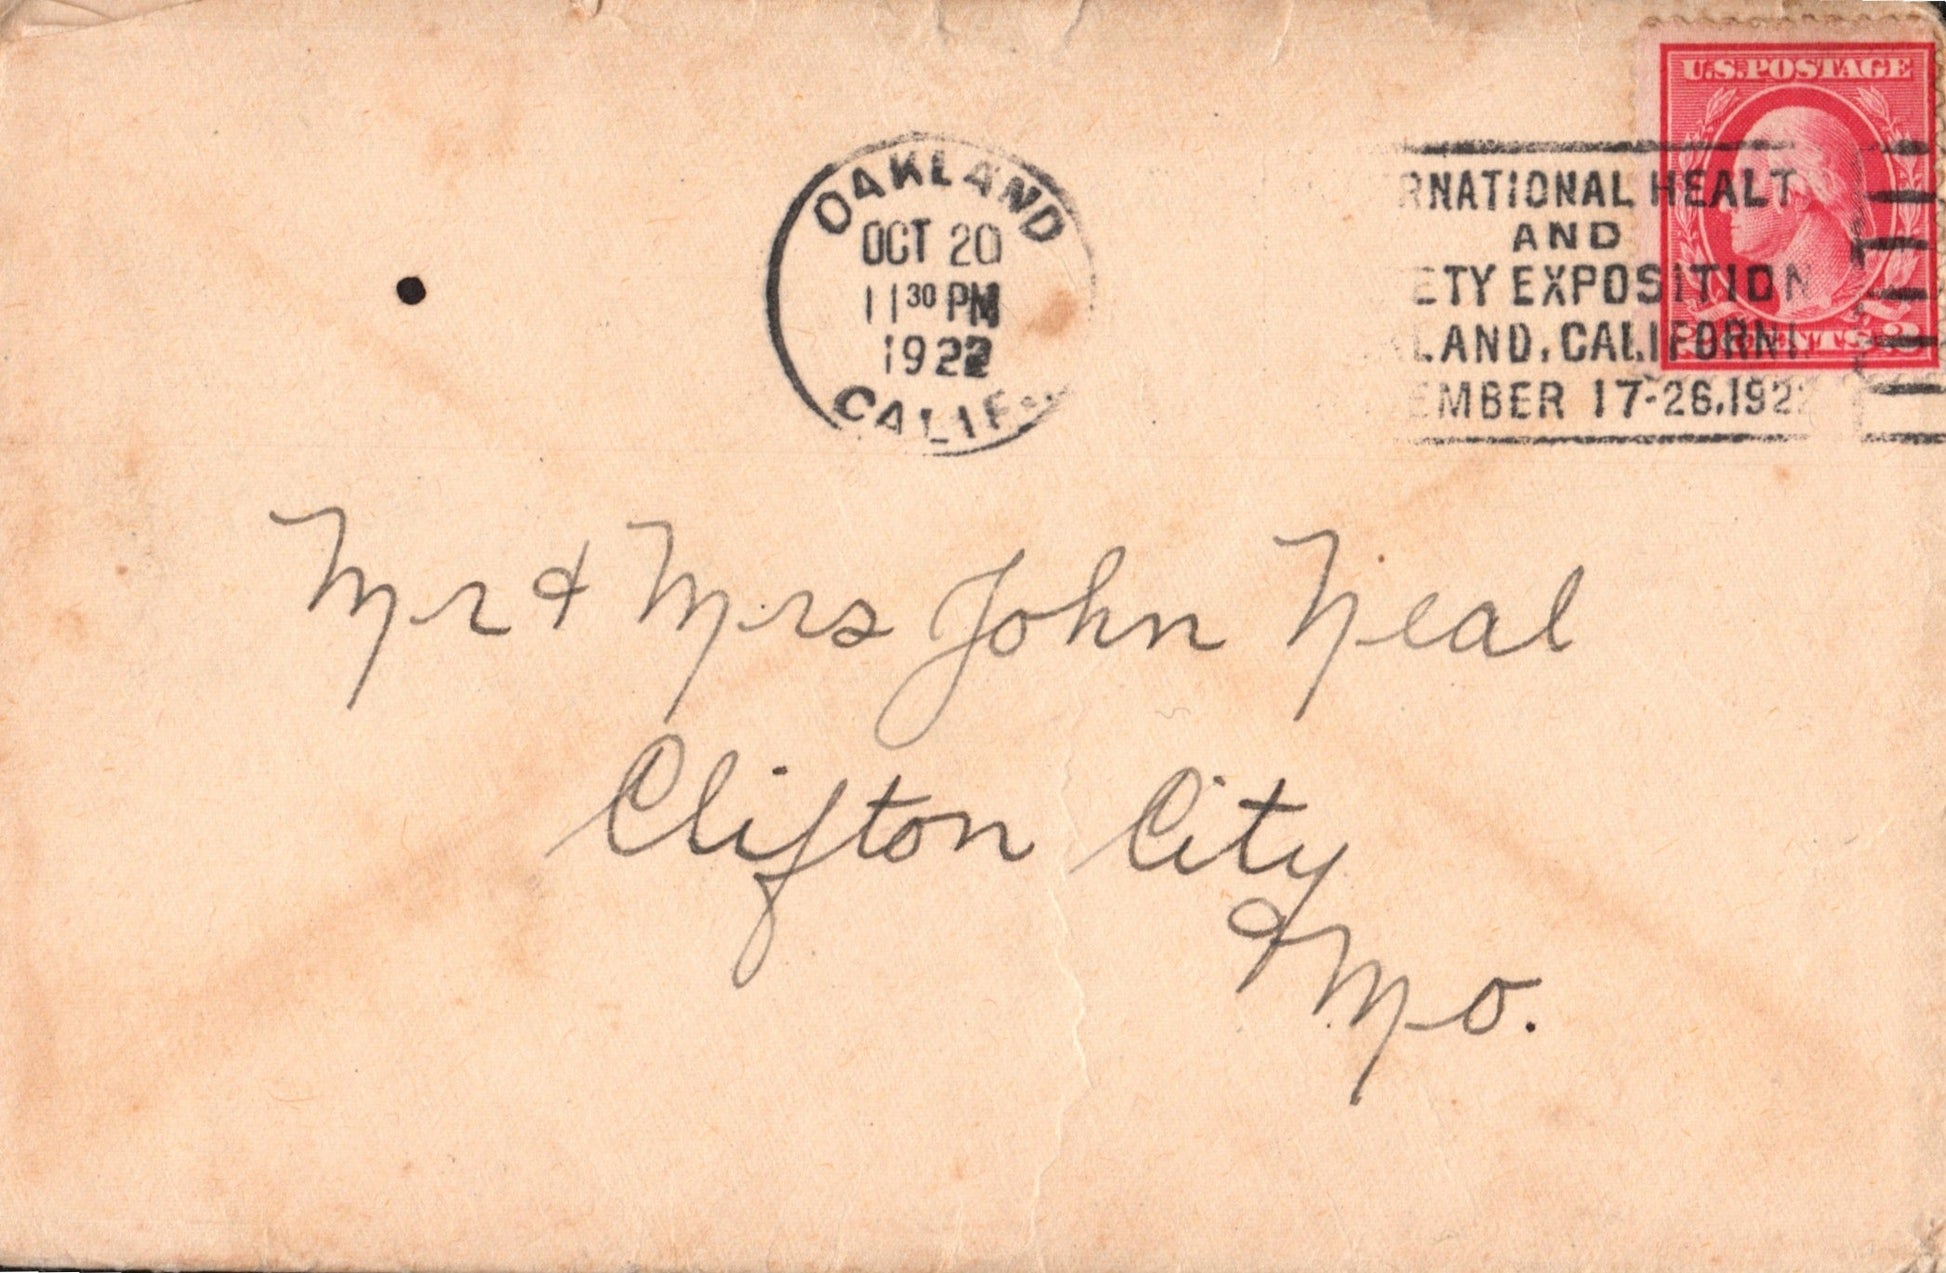 U.S. POSTAGE
OAKLAND
OCT 20
11 30 PM
1922
CALIF.
RNATIONAL HEALT
AND
ETY EXPOSITION
LAND, CALIFORNI
EMBER 17-26, 192
CENTS 2
Mr & Mrs John Neal
Clifton City
Mo.